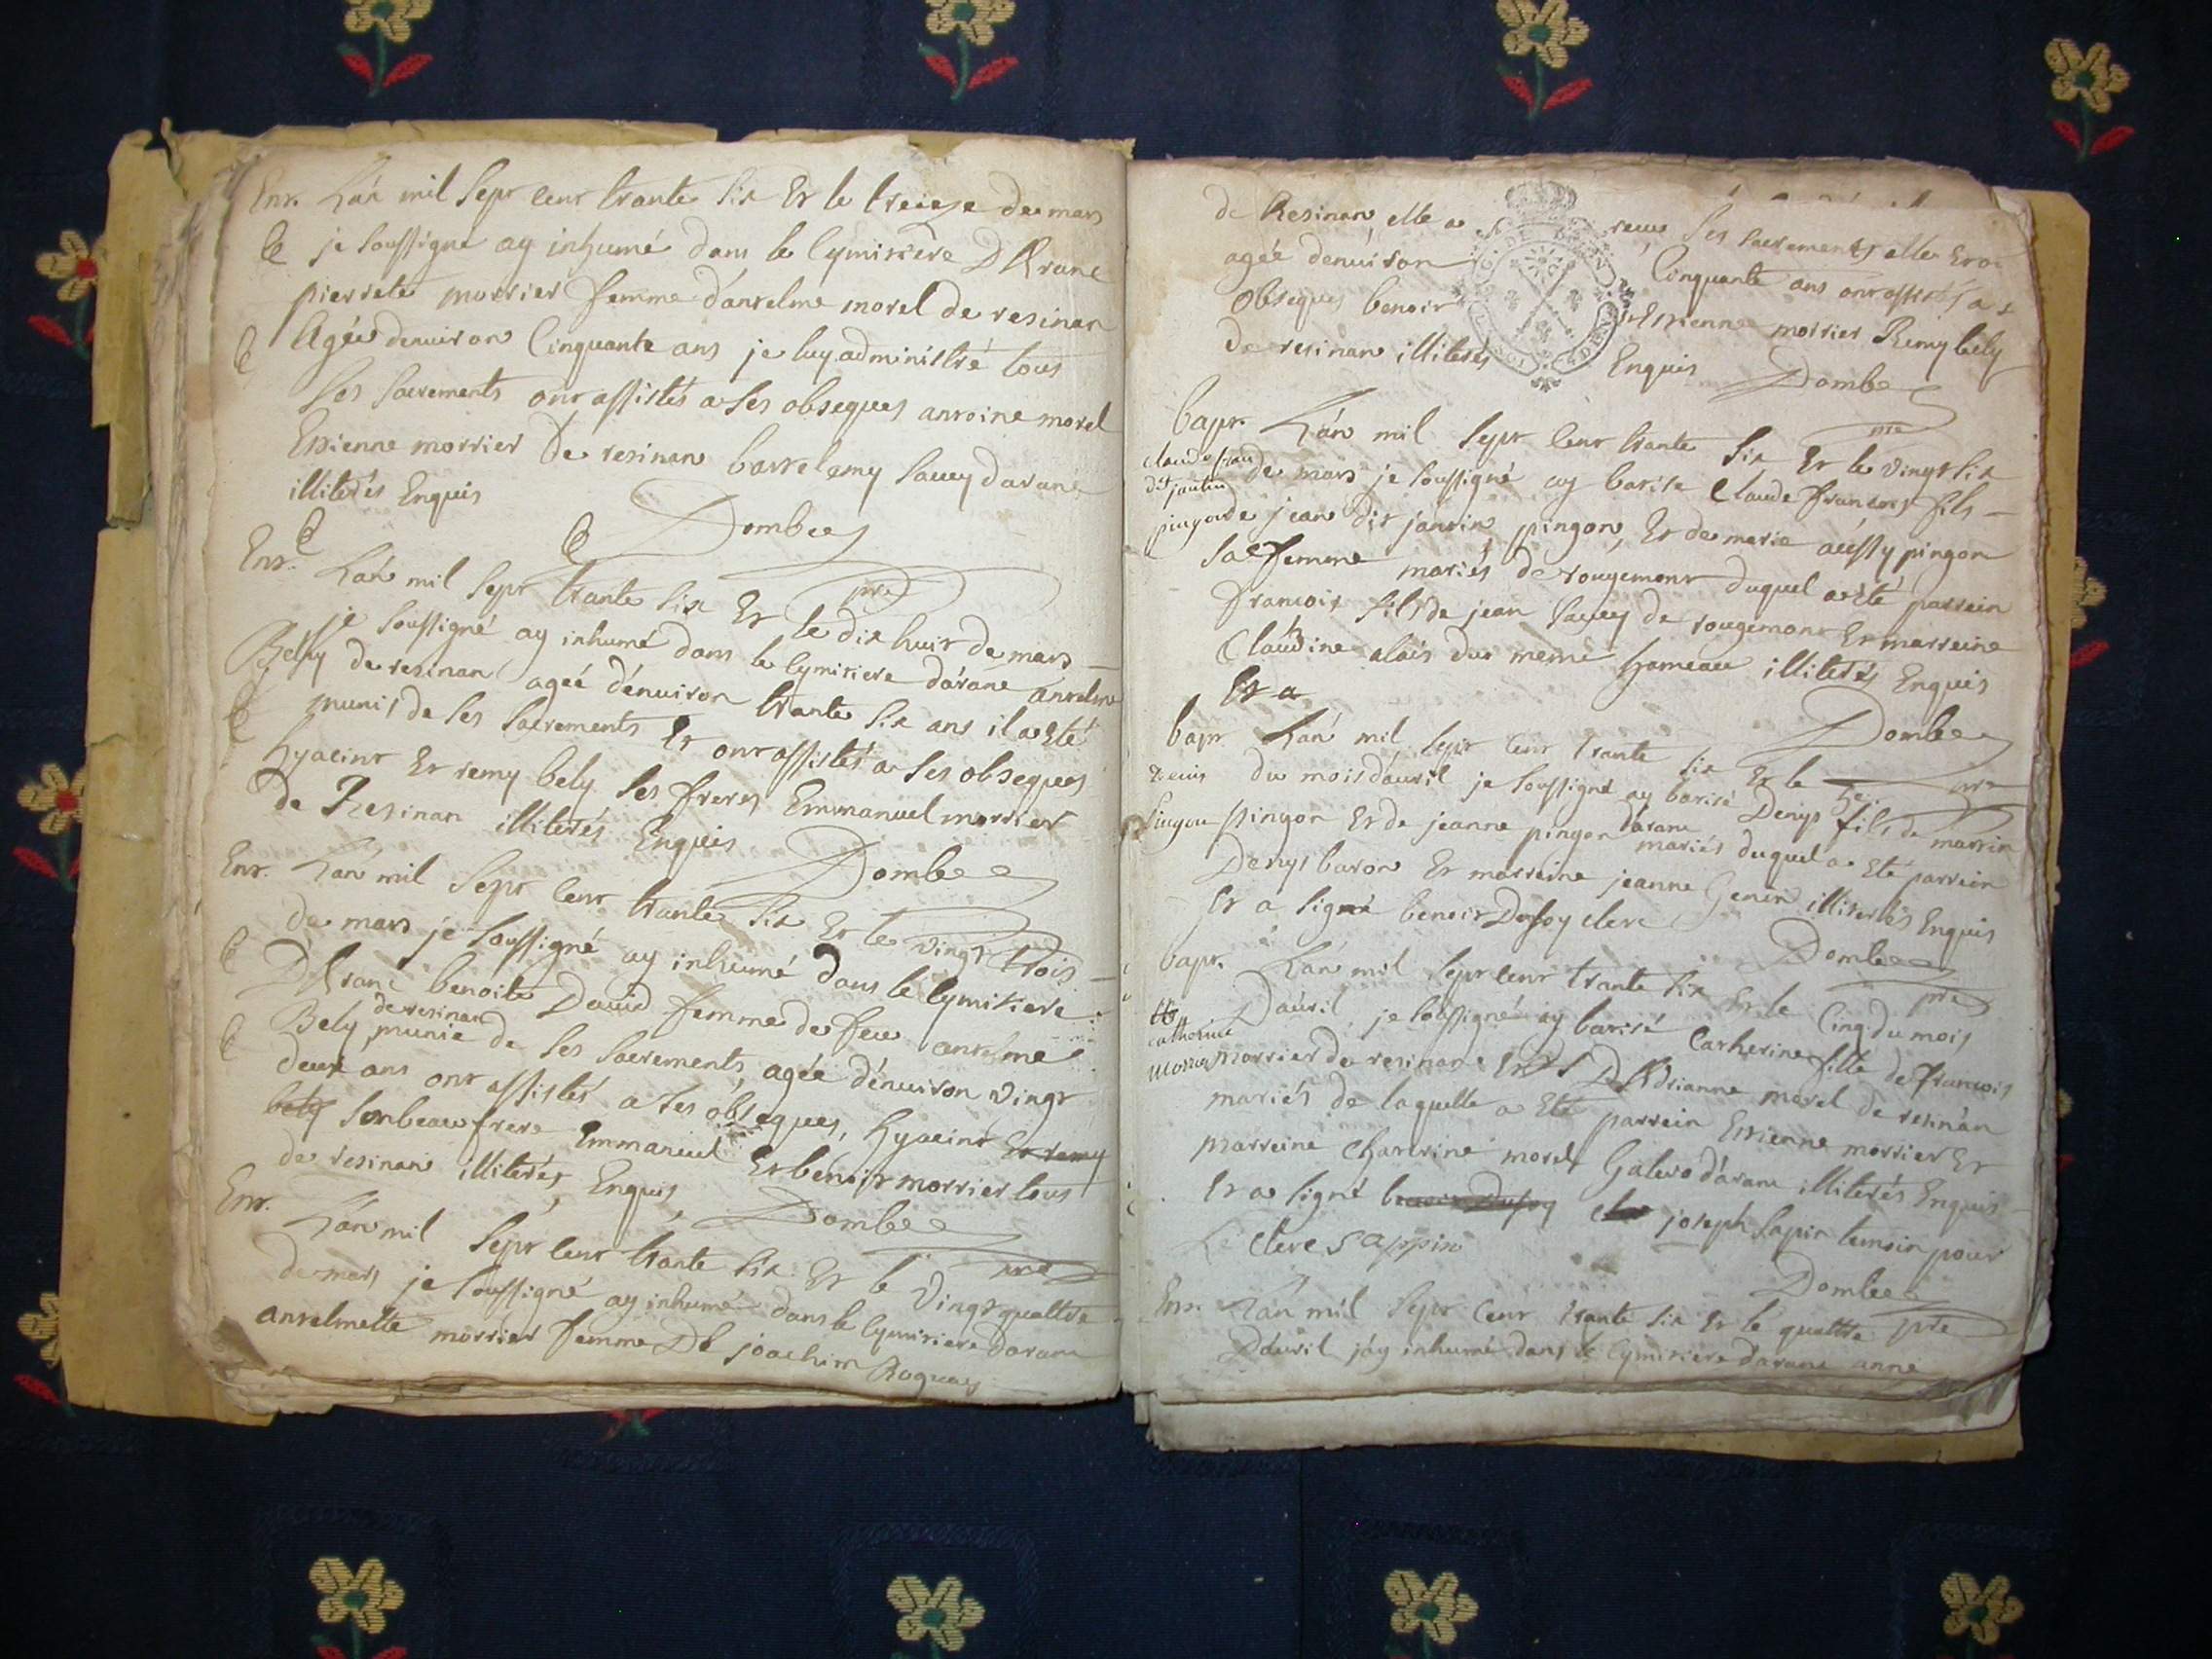 Enr. Lán mil Sept cent trante six Et le treieze de mars
je soussigné ay inhumé dans le Cymitiere D'Arane
pierrete morrier femme d'antelme morel de resinan
Agée denuiron Cinquante ans je luy administré tous
ses sacrements ont assistés a ses obseques antoine morel
Etienne morrier de resinan barrelemy sauey darane
illiterés Enquis
Dombey
pre
Enr. Lán mil sept trante six Et le dix huit de mars
je soussigné ay inhumé dans le Cymitiere dárane antelme
Bely de resinan agéé dénuiron trante six ans il a eté
munis de ses sacrements Et ont assistés a ses obseques
hyacint Et remy bely ses freres Emmanuel morrier
de Resinan illiterés Enquis Dombey
Enr. Lán mil Sept cent trante six Et le vingt trois
de mars je soussigné ay inhumé dans le Cymitiere
D'Arane benoite Dauid femme de feu antelme
de resinan
Bely munie de ses sacrements agée dénuiron vingt
deux ans ont assistés a ses obseques, hyacint Et remy
bely son beau frere Emmanuel Et benoit morrier tous
de resinan illiterés Enquis Dombey
pre
Enr. Lán mil Sept cent trante six Et le Vingt quattre
de mars je soussigné ay inhumé dans le Cymitiere darane
antelmette morrier femme De joachim
de Resinan elle a receu ses sacrements elle
agéé denuiron Cinquante ans ont assistés a
obseques benoit Et Etienne morrier Remy bely
de resinan illiterés Enquis Dombey
pre
bapt. Lán mil Sept cent trante six Et le vingt six
claude fran
de mars je soussigné ay batisé Claude francois fils
dit jantin
pingon
de jean dit jantin pingon, Et de marie aússy pingon
sa femme mariés de rougemont duquel a eté parrein
francois fils de jean sauey de rougemont Et marreine
Claudine alais du meme hameau illiterés Enquis
Et a
Dombey
pre
bapt Lán mil Sept cent trante six Et le
du mois dáuril je soussigné ay batisé Denys fils de martin
dárane
pingon Et de jeanne pingon mariés duquel a Eté parrein
Denys baron Et marreine jeanne Genin illiterés Enquis
Et a signé benoit Dufoy clerc
Dombey
pre
bapt. Lán mil Sept cent trante six Et le Cinq du mois
Dáuril je soussigné ay batisé Catherine fille de francois
catherine
morrier de resinan Et D'Adrianne morel de resinan
mariés de laquelle a Eté parrein Etienne morrier Et
marreine Chatrine morel Galero dárane illiterés Enquis
Et a signé benoit Dufoy clerc joseph sapin temoin pour
Le clerc Sappin
Dombey
pre
Enr. Lán mil Sept Cent trante six Et le quattre
Dáuril jáy inhumé dans le Cymitiere darane anne